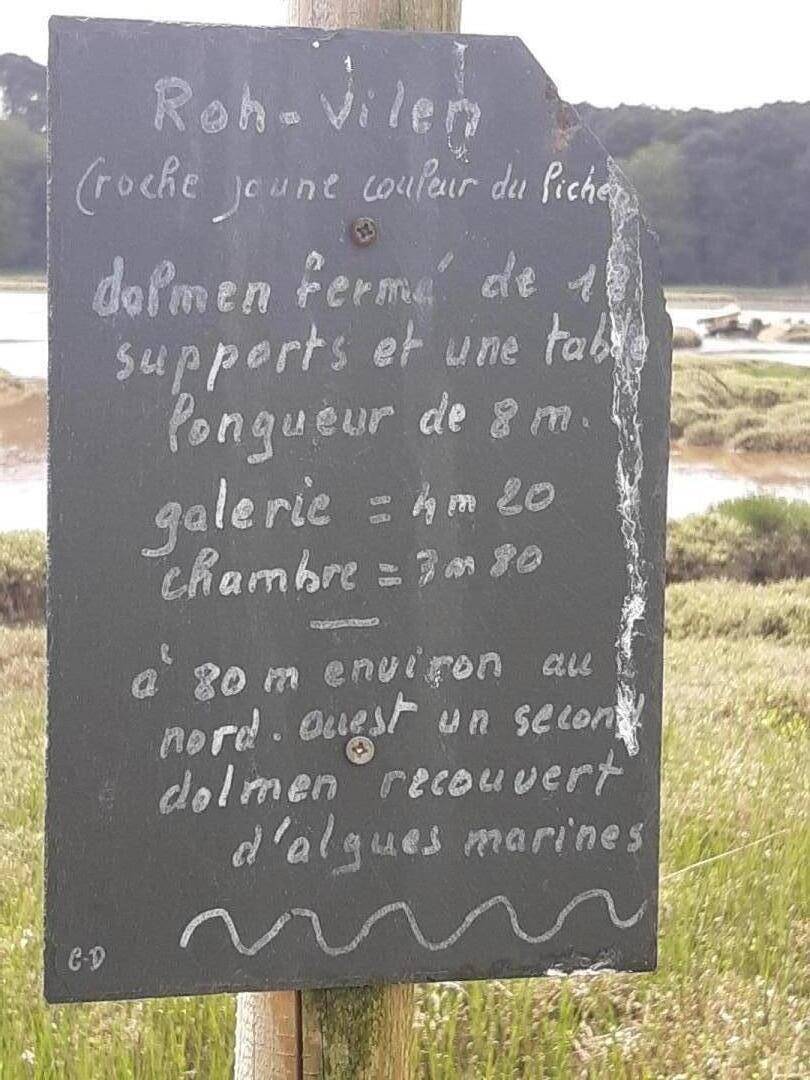 Roh-Vilen
(roche jaune couleur du lichen
dolmen fermé de 18
supports et une table
longueur de 8 m.
galerie = 4m 20
chambre = 3m 80
à 80 m environ au
nord-ouest un second
dolmen recouvert
d'algues marines
G-D